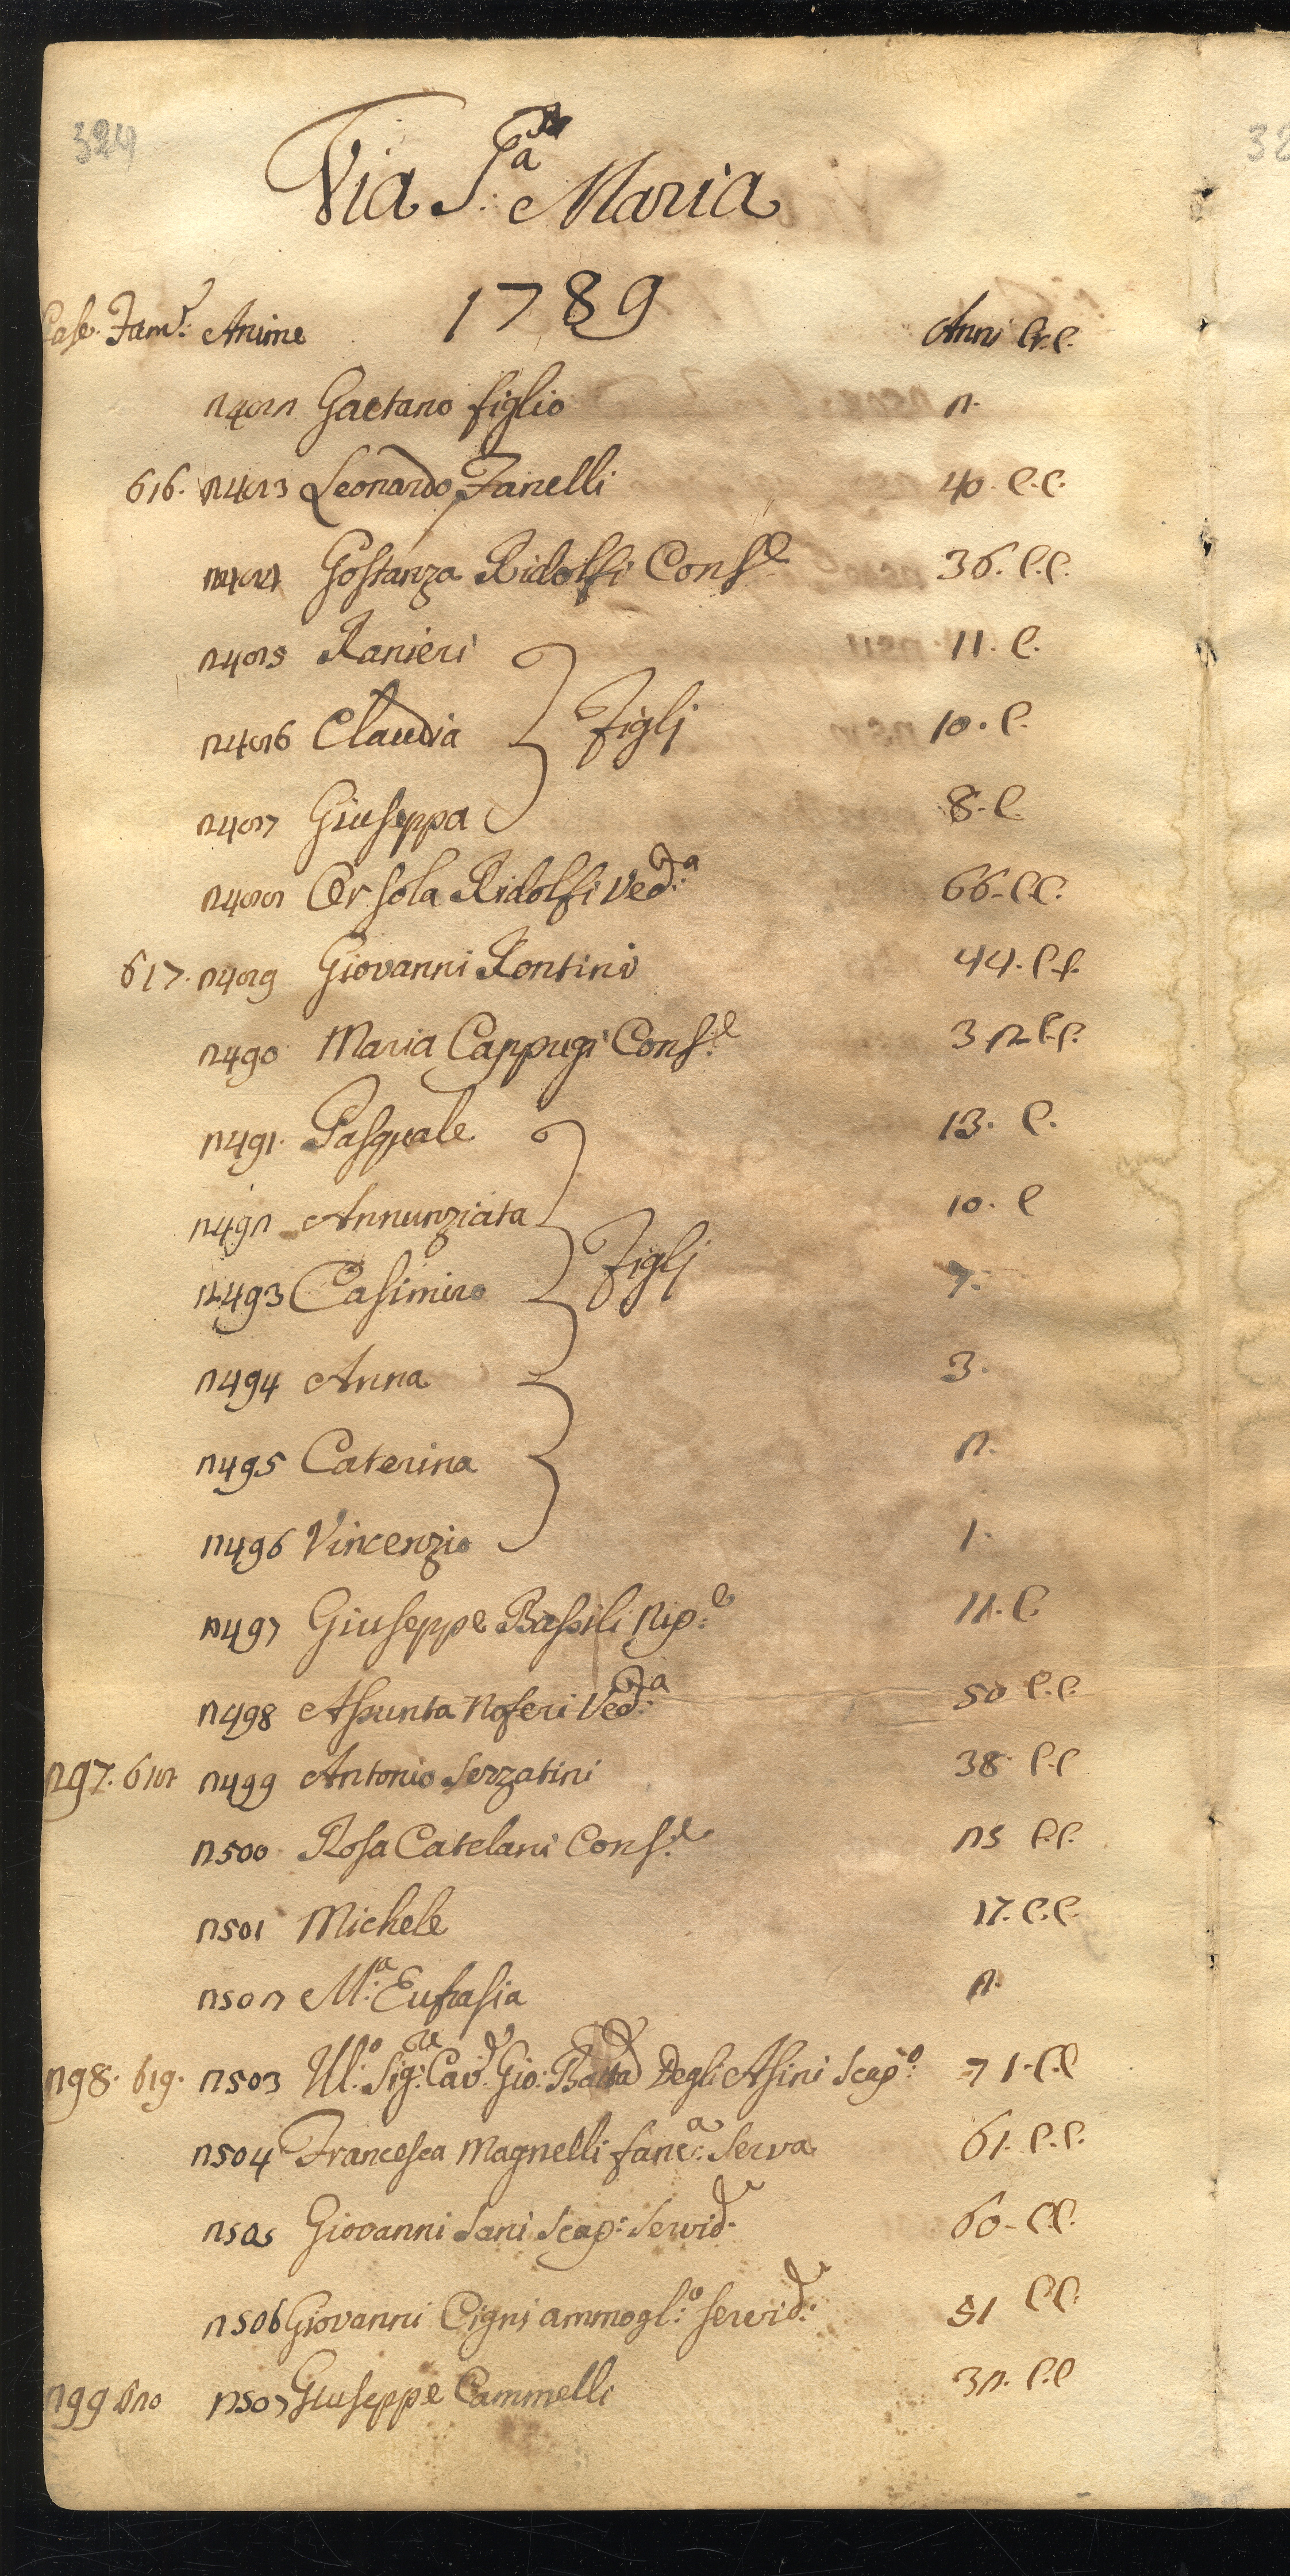 324
Via S:a Maria
1789
Case. Fam:e Anime Anni Cr.C.
2482 Gaetano figlio 2.
616. 2483 Leonardo Fanelli 40. C.C.
2484 Gostanza Ridolfi Cons:e 36. C.C.
2485 Ranieri 11. C.
2486 Claudia Figlj 10. C.
2487 Giuseppa 8. C.
2488 Orsola Ridolfi Ved:a 66. C.C.
617. 2489 Giovanni Rontini 44. C.C.
2490 Maria Cappugi Cons:e 32 C.C.
2491. Pasquale 13. C.
2492 Annunziata 10. C
2493 Casimiro Figlj 7.
2494 Anna 3.
2495 Caterina 2.
2496 Vincenzio 1.
2497 Giuseppe Bassili Nip:e 12. C
2498 Assunta Noferi Ved:a 50 C.C.
297. 618 2499 Antonio Serzatini 38 C.C
2500 Rosa Catelani Cons:e 25 C.C.
2501 Michele 17. C.C.
2502 M:a Eufrasia 2.
298. 619. 2503 Ill:o Sig:re Cav:e Gio: Batta Degli Asini Scap:o 71. C.C
2504 Francesca Magnelli fanc:a Serva 61. C.C.
2505 Giovanni Sani Scap: Servid:e 60. C.C.
2506 Giovanni Cigni ammogl:o servid:e 51 C.C.
299 620 2507 Giuseppe Cammelli 32. C.C